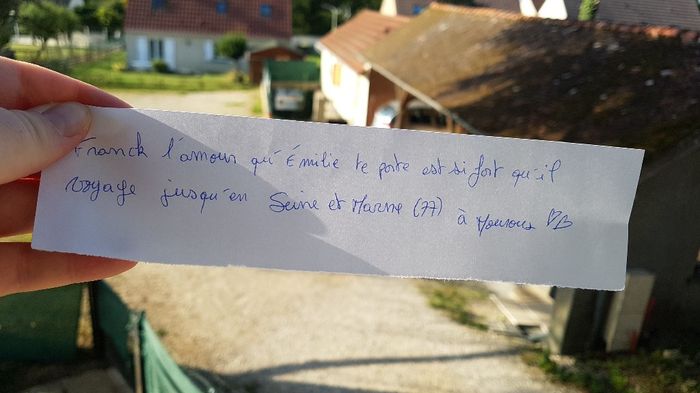 Franck l'amour qu'Émilie te porte est si fort qu'il
voyage jusqu'en Seine et Marne (77) à Mouroux